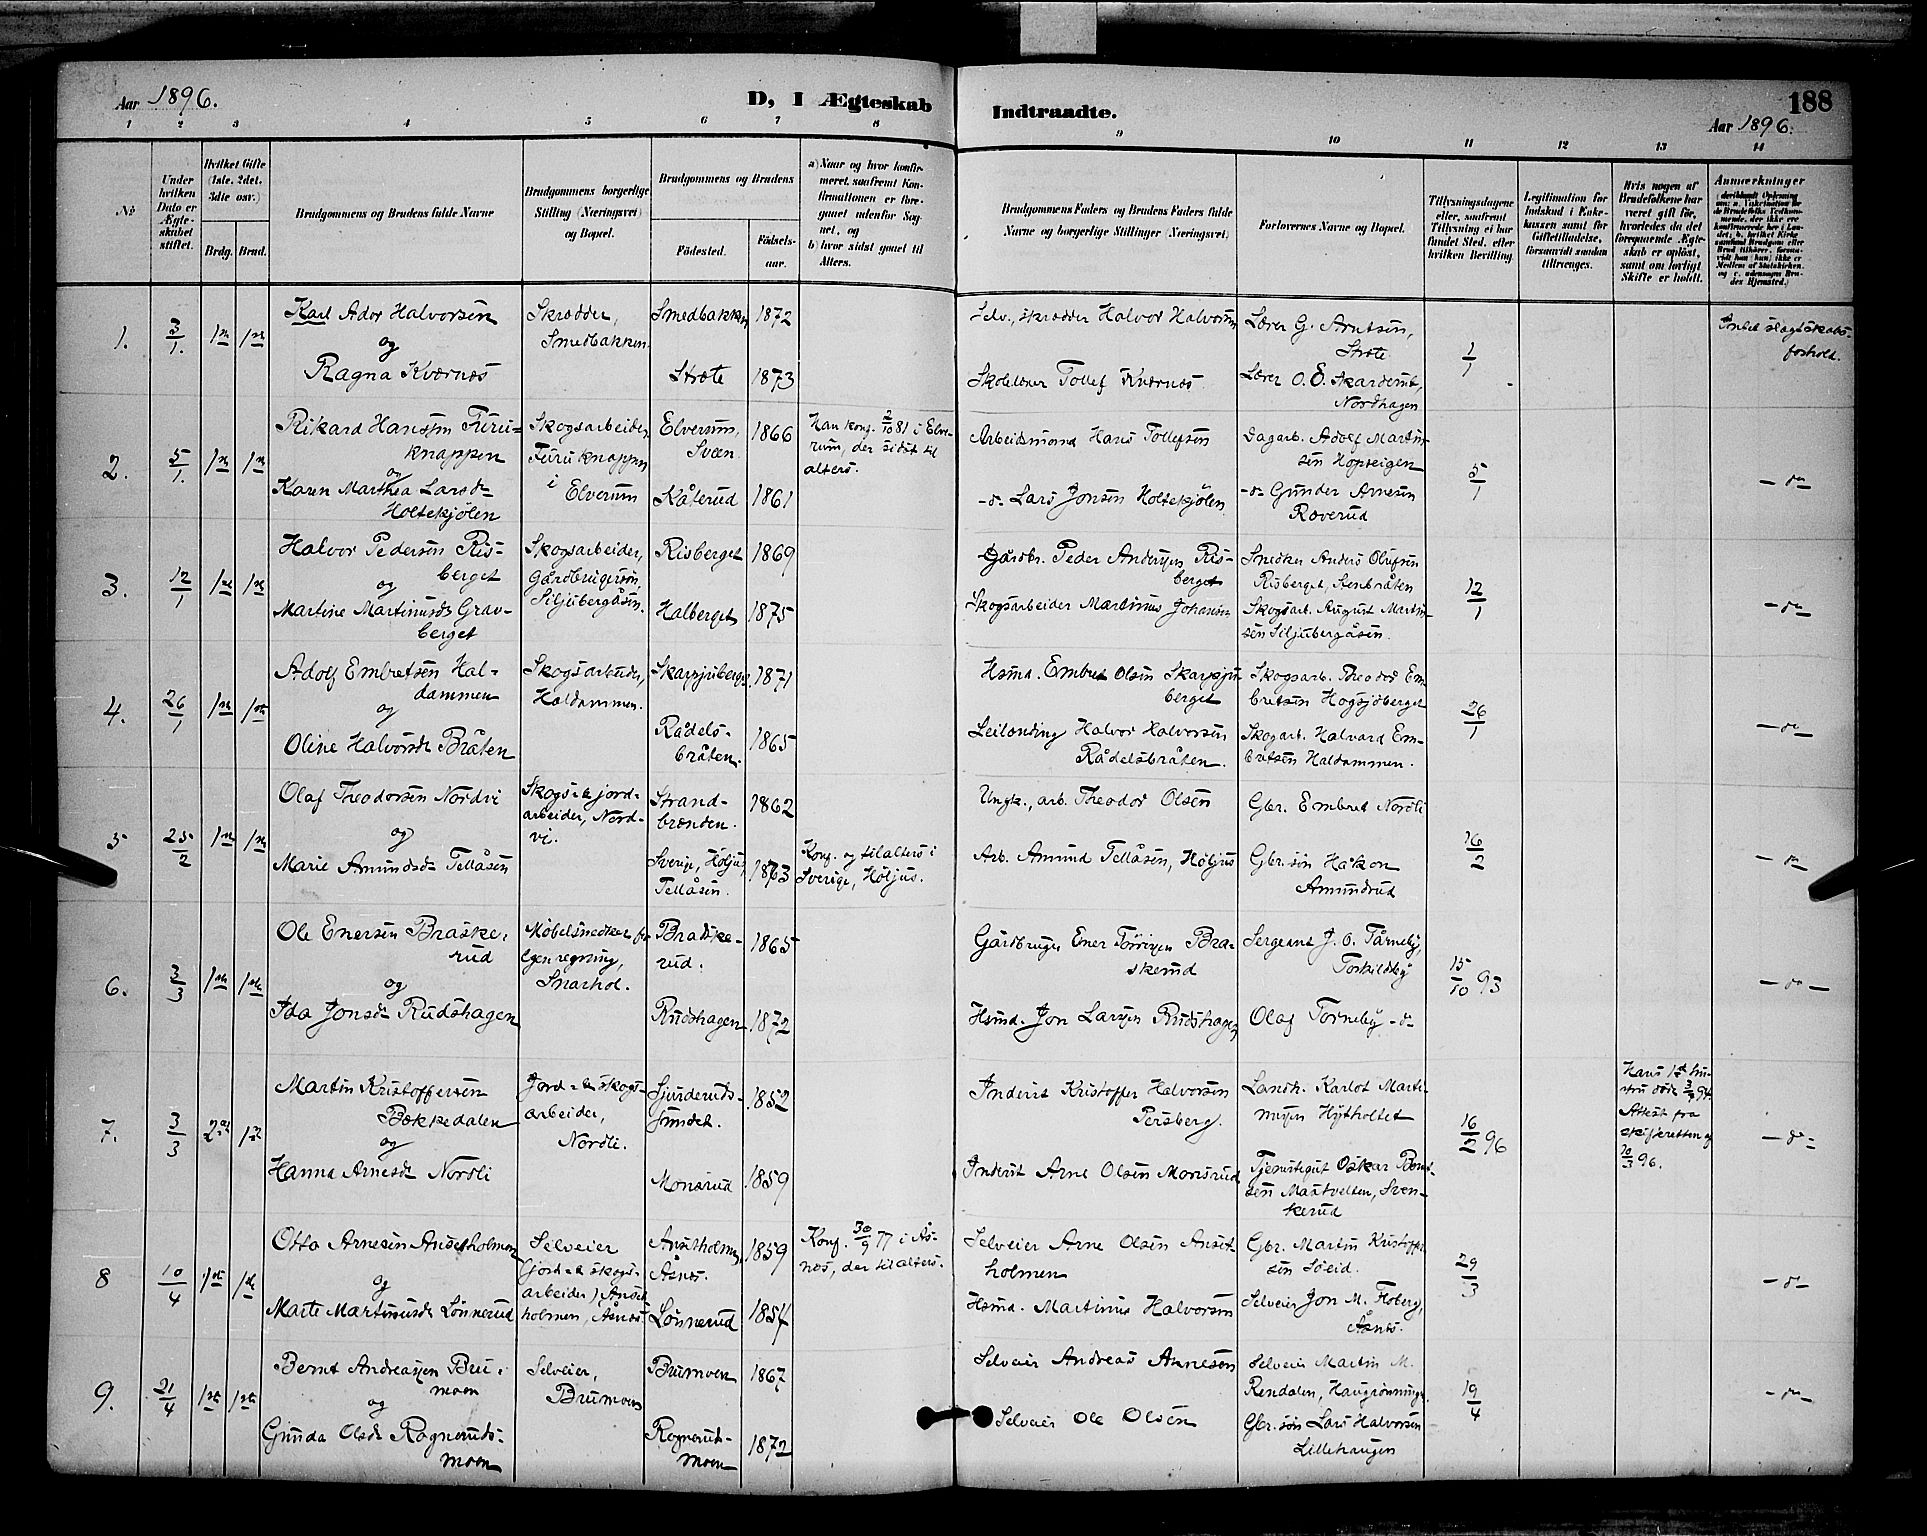 Aar 1896. D, I Ægteskab Indtraadte. 188
Aar 1896.
1 2 3 4 5 6 7 8 9 10 11 12 13 14
No
Under hvilken Dato er Ægteskabet stiftet.
Hvilket Gifte (1ste, 2det, 3die osv.)
Brdg. Brud.
Brudgommens og Brudens fulde Navne
Brudgommens borgerlige Stilling (Næringsvei) og Bopæl.
Brudgommens og Brudens
Fødested. Fødsels-aar.
a) Naar og hvor konfirmeret, saafremt Konfirmationen er foregaaet udenfor Sognet, og
b) hvor sidst gaaet til Alters.
Brudgommens Faders og Brudens Faders fulde Navne og borgerlige Stillinger (Næringsvei)
Forlovernes Navne og Bopæl.
Tillysningsdagene eller, saafremt Tillysning ei har fundet Sted, efter hvilken Bevilling.
Legitimation for Indskud i Enkekassen samt for Giftetilladelse, forsaavidt saadan tiltrænges.
Hvis nogen af Brudefolkene har været gift før, hvorledes da det foregaaende Ægteskab er opløst, samt om lovligt Skifte er holdt.
Anmærkninger
1. 3/1. 1ste 1ste
Karl Ador Halvorsen
og
Ragna Kværnes
Skrædder,
Smedbakken
Smedbakken 1872
Stræte 1873
Selv., skrædder Halvor Halvorsen
Skolelærer Tollef Kværnes
Lærer G. Arntsen,
Stræte
Lærer O. E. Skarderut,
Nordhagen
1/1
Intet slagtskabs-
forhold.
2. 5/1. 1ste 1ste
Rikard Hansen Furu-
knappen
og
Karen Marthea Larsdr
Holtekjölen
Skogsarbeider
Furuknappen
i Elverum
Elverum,
Svæen. 1866
Kåterud 1861
Han konf. 2/10 81 i Elve-
rum, der sidst til
alters.
Arbeidsmand Hans Tollefsen
-do- Lars Jonsen Holtekjölen
Dagarb. Adolf Martin-
sen Hopseigen
-do- Gunder Arnesen
Røverud
5/1
-do-
3. 12/1 1ste 1ste
Halvor Pedersen Ris-
berget
og
Martine Martinusdr Grav-
berget
Skogsarbeider,
Gårdbrugersön,
Siljubergåsen.
Risberget 1869
Halberget 1875
Gårdbr. Peder Andersen Ris-
berget
Skogsarbeider Martinus Johansen
Snedker Anders Olufsen
Risberget, Stenbråten
Skogsarb. August Martin-
sen Siljubergåsen.
12/1
-do-
4. 26/1 1ste 1ste
Adolf Embretsen Hal-
dammen
og
Oline Halvorsdr Bråten
Skogsarbeider,
Haldammen.
Skarpsjuberget 1871
Rådels-
bråten. 1865
Hsmd. Embret Olsen Skarpsju-
berget
Leilending Halvor Halvorsen
Rådelsbråten.
Skogsarb. Theodor Em-
bretsen Hogsjöberget
Skogarb. Halvard Em-
bretsen Haldammen.
26/1
-do-
5 25/2 1ste 1ste
Olaf Theodorsen Nordvi
og
Marie Amundsdr Tellåsen
Skogs- & jord-
arbeider, Nord-
vi.
Strand-
brænden. 1862
Sverige, Höljus,
Tellåsen. 1863
Konf. og til alters i
Sverige, Höljus.
Ungk., arb. Theodor Olsen
Arb. Amund Tellåsen, Höljus
Gbr. Embret Nordli
Gbr. sön Håkon
Amundrud
16/2
-do-
6. 3/3 1ste 1ste
Ole Enersen Braske-
rud
og
Ida Jonsdr Rudshagen
Möbelsnedker for
egen regning,
Snarhol.
Braske-
rud. 1865
Rudshagen 1872
Gårdbruger Ener Törrisen Bra-
skerud
Hsmd. Jon Larsen Rudshagen
Sergeant J. O. Tårneby,
Torkildsby
Olaf Torneby -do-
15/10 93
-do-
7. 3/3 2det 1ste
Martin Kristoffersen
Bækkedalen
og
Hanna Arnesdr Nordli
Jord- & skogs-
arbeider,
Nordli.
Sjurderuds-
sundet. 1852
Monsrud 1859
Inderst Kristoffer Halvorsen
Persberg.
Inderst Arne Olsen Monsrud
Landh. Karlot Marti-
nusen Hytholtet
Tjenestegut Oskar Bernt-
sen Mastvelten, Sven-
kerud
16/2 96
Hans 1ste hu-
stru döde 3/4 94.
Attest fra
skifteretten af
20/3 96.
-do-
8 10/4 1ste 1ste
Otto Arnesen Ansetholmen
og
Marte Martinusdr Lönnerud
Selveier
(jord- & skogs-
arbeider) Anset-
holmen, Åsnes.
Ansetholmen,
Åsnes. 1859
Lönnerud 1854
Konf. 30/9 77 i Ås-
nes, der til alters.
Selveier Arne Olsen Anset-
holmen
Hsmd. Martinus Halvorsen
Gbr. Martin Kristoffer-
sen Söeid.
Selveier Jon M. Floberg,
Åsnes.
29/3
-do-
9. 21/4 1ste 1ste
Bernt Andreasen Bru-
moen
og
Gunda Olsdr Rogneruds-
moen
Selveier,
Brumoen
Brumoen 1867
Rognerud-
moen 1872
Selveier Andreas Arnesen
Selveier Ole Olsen
Selveier Martin M.
Rendalen, Haugrönninge
Gbr. sön Lars Halvorsen
Lillehaugen
19/4
-do-